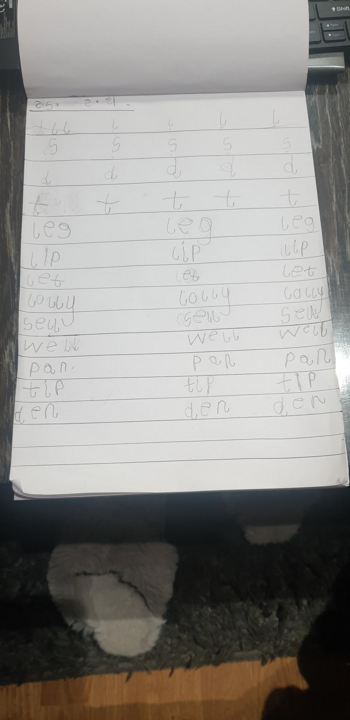 l l l l l
s s s s s
p p p p p
t t t t t
leg leg leg
lip lip lip
let let let
lolly lolly lolly
sell sell sell
well well well
pan pan pan
tip tip tip
den den den